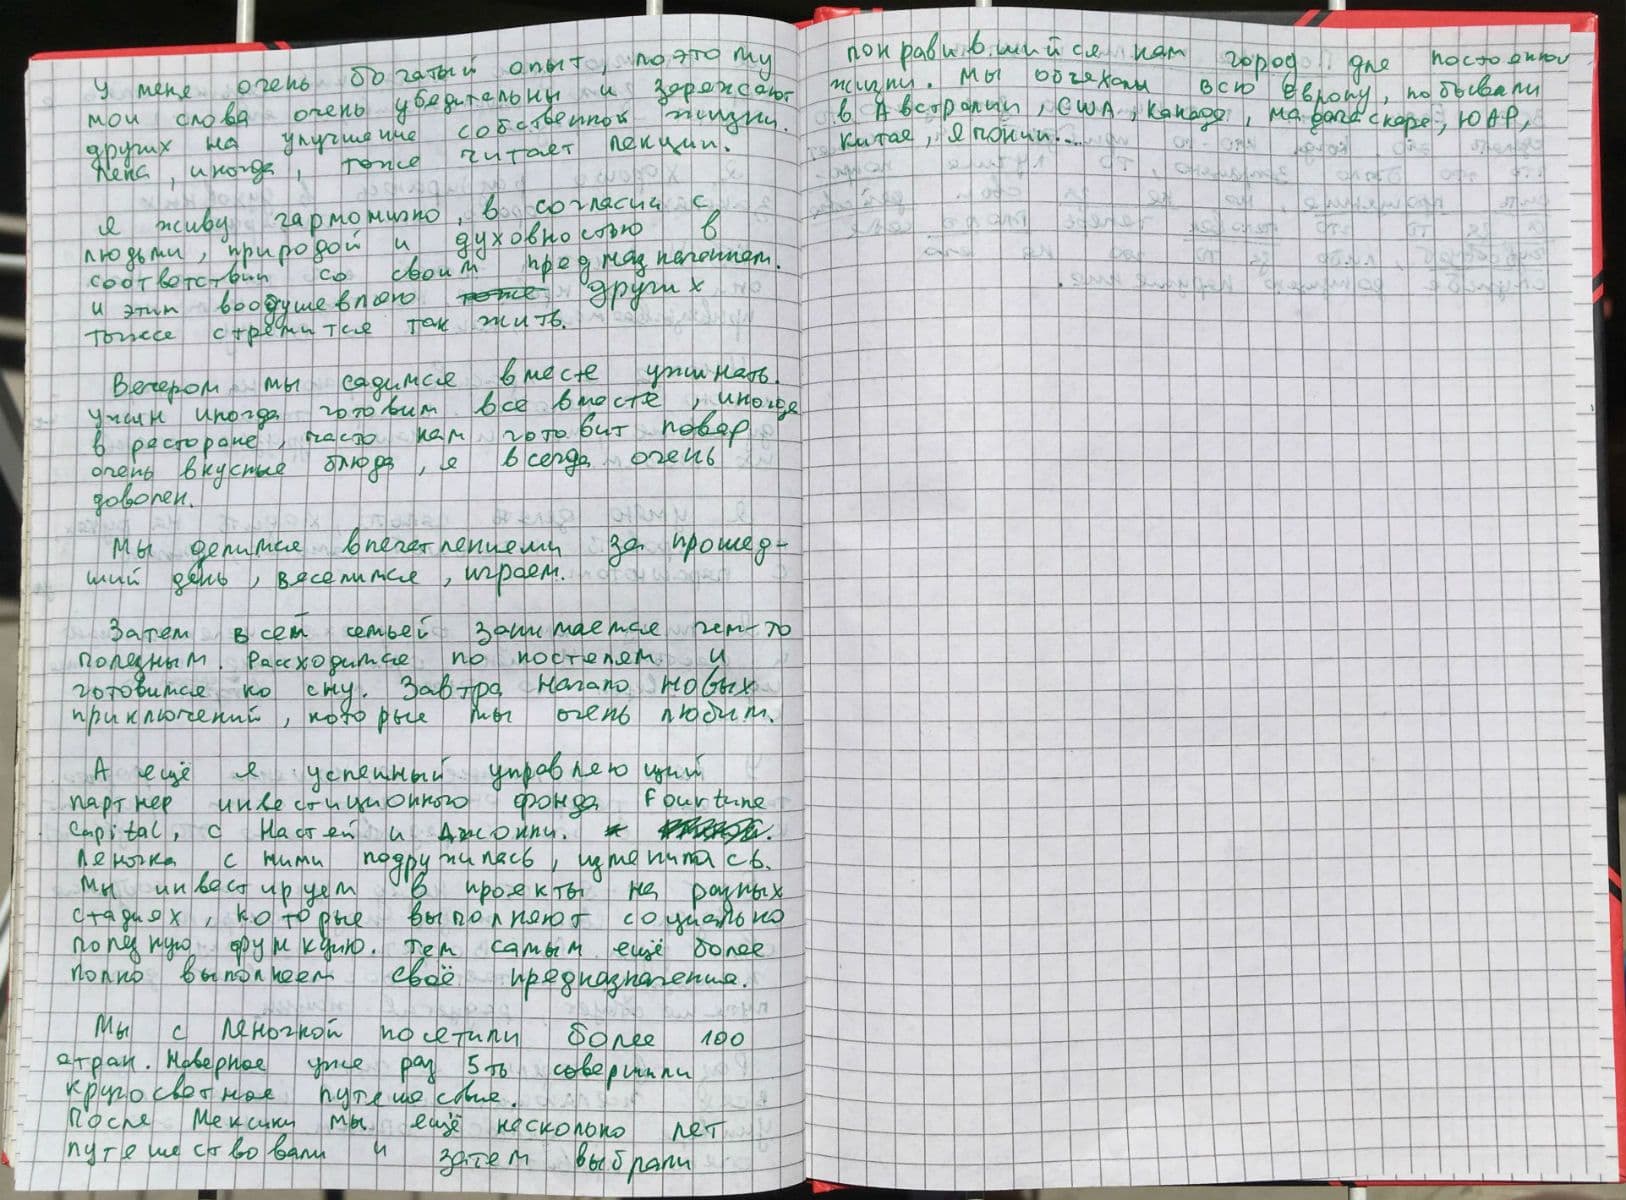 У меня очень богатый опыт, поэтому
мои слова очень убедительны и заряжают
других на улучшение собственной жизни.
Лена, иногда, тоже читает лекции.
Я живу гармонично, в согласии с
людьми, природой и духовностью в
соответствии со своим предназначением.
и этим воодушевляю тоже других
тоже стремится так жить.
Вечером мы садимся вместе ужинать.
Ужин иногда готовим все вместе, иногда
в ресторане, часто нам готовит повар
очень вкусные блюда, я всегда очень
доволен.
Мы делимся впечатлениями за прошед-
ший день, веселимся, играем.
Затем всей семьей занимаемся чем-то
полезным. Расходимся по постелям и
готовимся ко сну. Завтра начало новых
приключений, которые мы очень любим.
А ещё я успешный управляющий
партнер инвестиционного фонда Fourtune
Capital, с Настей и Джонни.
Леночка с ними подружилась, изменилась.
Мы инвестируем в проекты на разных
стадиях, которые выполняют социально
полезную функцию. Тем самым ещё более
полно выполняем своё предназначение.
Мы с Леночкой посетили более 100
стран. Наверное уже раз 5ть совершили
кругосветное путешествие.
После Мексики мы ещё несколько лет
путешествовали и затем выбрали
понравившийся нам город для постоянной
жизни. Мы объехали всю Европу, побывали
в Австралии, США, Канаде, Мадагаскаре, ЮАР,
Китае, Японии....